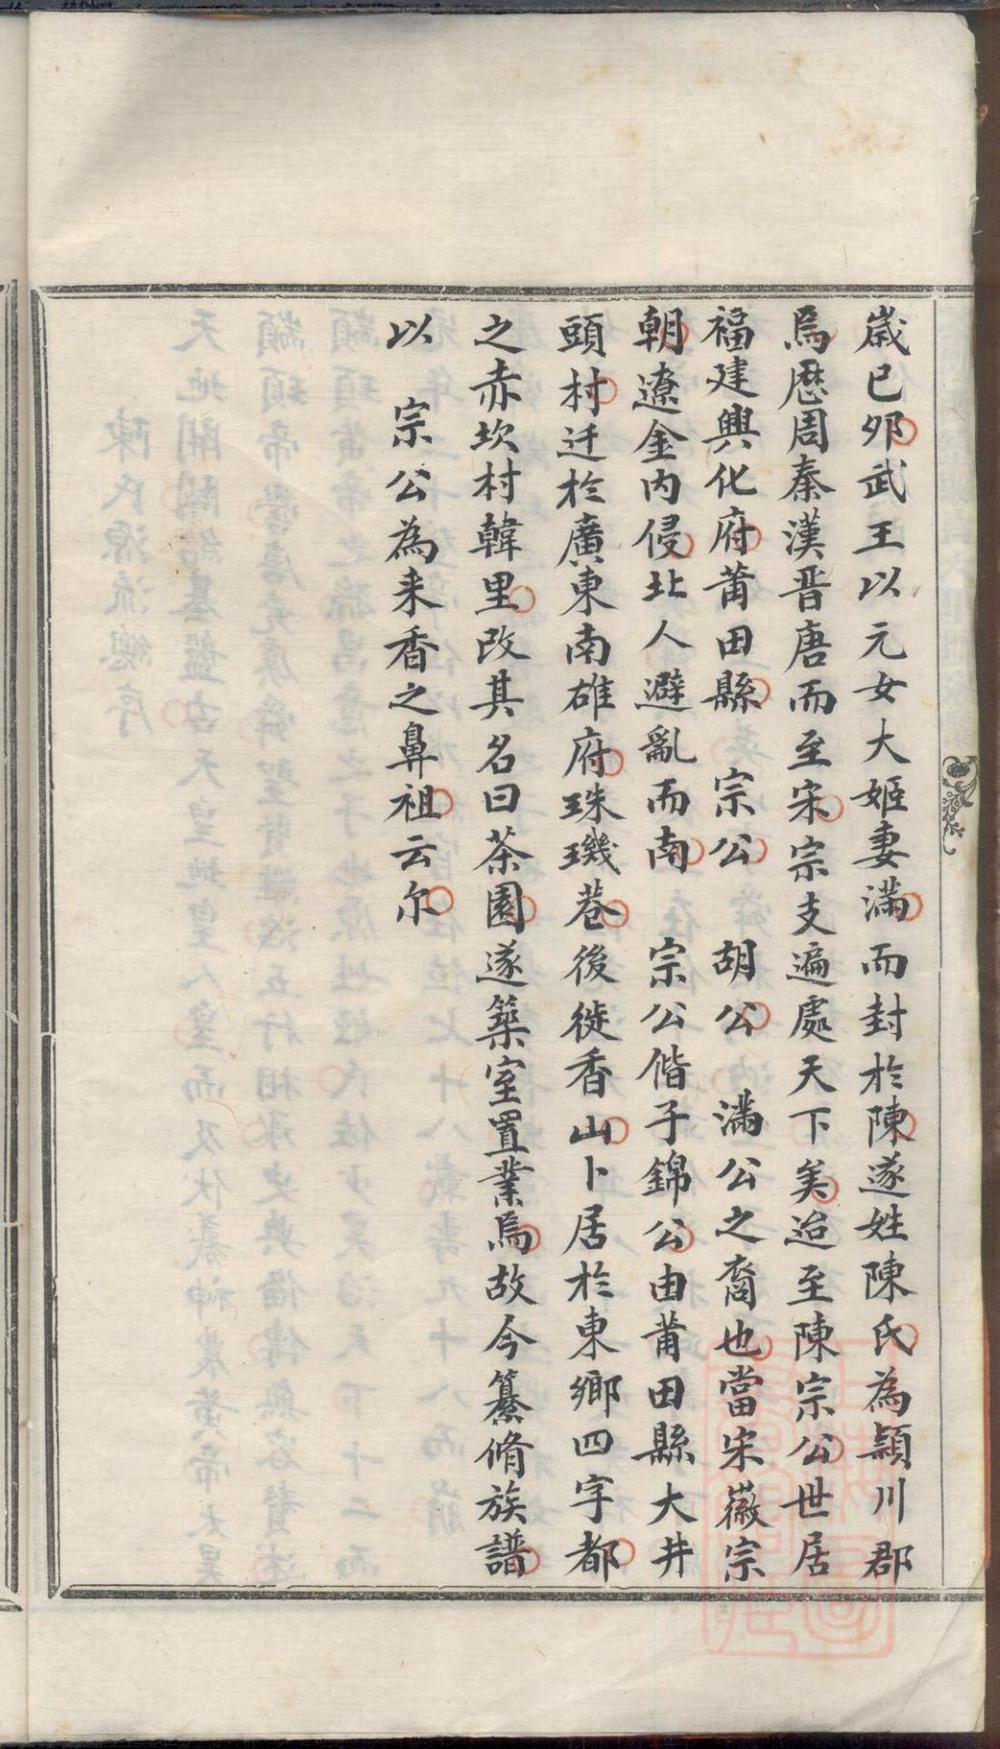 歲已夘武王以元女大姬妻滿而封於陳遂姓陳氏為頴川郡
焉厯周秦漢晋唐而至宋宗支遍處天下矣迨至陳宗公世居
福建興化府莆田縣 宗公 胡公 滿公之裔也當宋徽宗
朝遼金內侵北人避亂而南 宗公偕子錦公由莆田縣大井
頭村迁於廣東南雄府珠璣巷後徙香山卜居於東鄉四字都
之赤坎村韓里改其名曰茶園遂築室置業焉故今纂脩族譜
以 宗公為来香之鼻祖云尔